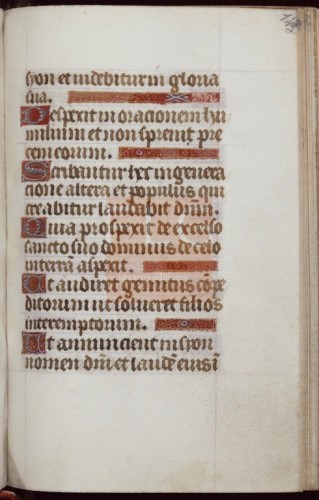 syon et videbitur in gloria
sua.
Respexit in orationem hu
milium et non sprevit pre
cem eorum.
Scribantur hec in genera
cione altera et populus qui
creabitur laudabit dñm.
Quia prospexit de excelso
sancto suo dominus de celo
in terrã aspexit.
Ut audiret gemitus cõpe
ditorum ut solveret filios
interemptorum.
Ut annuncient in syon
nomen dñi et laudẽ eius ĩ